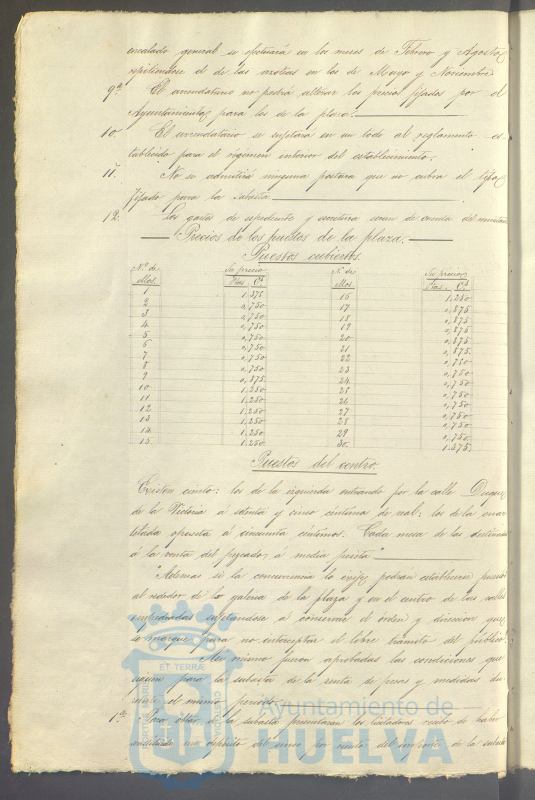 encalado general se efectuará en los meses de Febrero y Agosto,
repitiendose el de las azoteas en los de Mayo y Noviembre
9ª El arrendatario no podrá alterar los precios fijados por el
Ayuntamiento, para los de la plaza.
10. El arrendatario se sujetará en un todo al reglamento es-
tablecido para el régimen interior del establecimiento.
11. No se admitirá ninguna postura que no cubra el tipo
fijado para la subasta
12. Los gastos de espediente y escritura seran de cuenta del
Precios de los puestos de la plaza.
Puestos cubiertos.
Nº de ellos. Su precio Ptas. Cs. Nº de ellos. Su precio Ptas. Cs.
1 1.375 16 1.250
2 0,750 17 0,875
3 0,750 18 0,875
4 0,750 19 0,875
5 0,750 20 0,875
6 0,750 21 0,875
7 0,750 22 0,750
8 0,750 23 0,750
9 0,875 24 0,750
10 1.250 25 0,750
11 1.250 26 0,750
12 1.250 27 0,750
13 1.250 28 0,750
14 1.250 29 0,750
15 1.250 30 1.375
Puestos del centro.
Existen ciento: los de la izquierda entrando por la calle Duque
de la Victoria á setenta y cinco centimos de real: los de la
opuesta á cincuenta céntimos. Cada mesa de las destinadas
á la venta del pescado, á media peseta"
"Ademas si la concurrencia lo exije, podrán establecerse puestos
al rededor de la galeria de la plaza y en el centro de las calles
empedradas sujetandose a conservar el órden y direccion que
se marque para no interceptar el libre transito del público.
Asi mismo fueron aprobadas las condiciones que
siguen para la subasta de la renta de pesas y medidas du-
rante el mismo periodo
1ª Para optar á la subasta presentarán los licitadores recibo de haber
un depósito del cinco por ciento del importe de la subasta
ET TERRAE
Ayuntamiento de
HUELVA